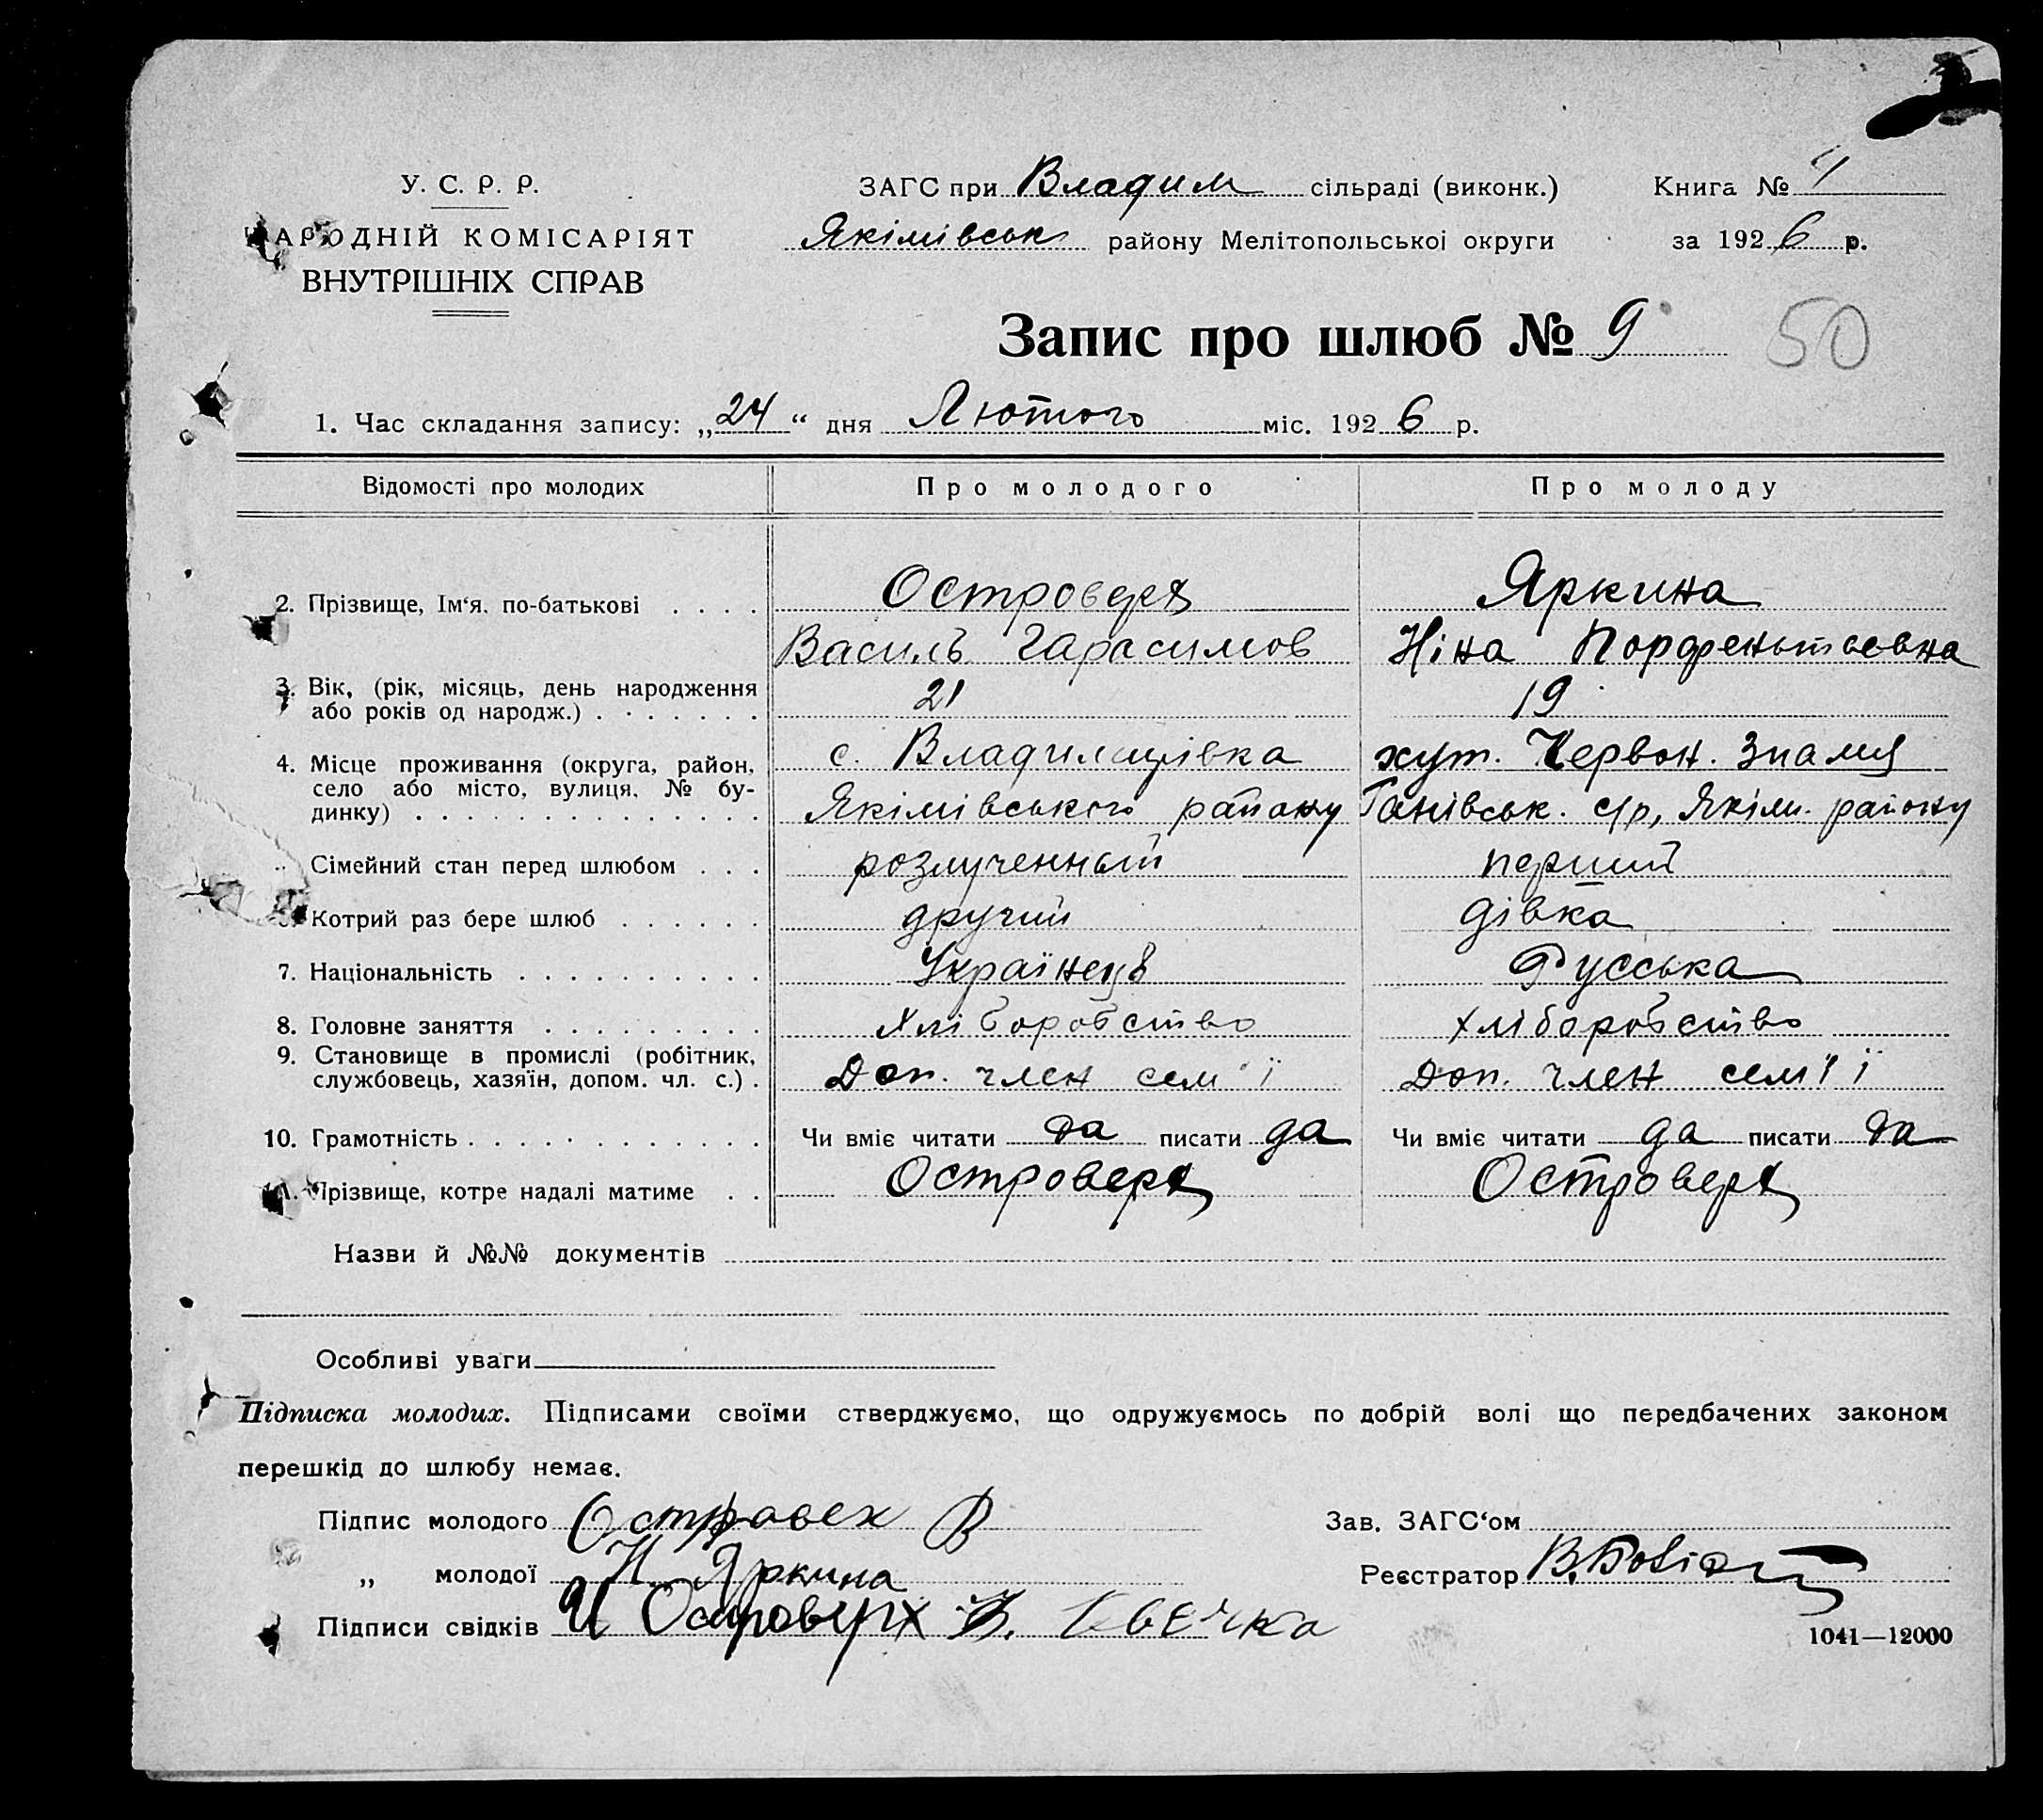 У. С. Р. Р.
НАРОДНІЙ КОМІСАРІЯТ
ВНУТРІШНІХ СПРАВ
ЗАГС при Владим сільраді (виконк.) Книга №
Якімівськ району Мелітопольської округи за 1926 р.
Запис про шлюб № 9
50
1. Час складання запису: „24“ дня Лютого міс. 1926 р.
Відомості про молодих Про молодого Про молоду
2. Прізвище, Ім‘я, по-батькові . . . . Островерх Яркина
Василь Гарасимов Ніна Порфеньтьевна
3. Вік, (рік, місяць, день народження 21 19
або років од народж.) . . . . . . .
4. Місце проживання (округа, район, с. Владимирівка хут. Червон. Знамя
село або місто, вулиця, № бу-
динку) . . . . . . . . . . . . . . Якімівського району Ганівськ. с/р, Якім. району
Сімейний стан перед шлюбом . . . розлученный перший
Котрий раз бере шлюб . . . . . . другий дівка
7. Національність . . . . . . . . . . Українець Русська
8. Головне заняття . . . . . . . . . Хліборобство хліборобство
9. Становище в промислі (робітник,
службовець, хазяїн, допом. чл. с.) . Доп. член сем'ї Доп. член сем'ї
10. Грамотність . . . . . . . . . . . . Чи вміє читати да писати да Чи вміє читати да писати да
11. Прізвище, котре надалі матиме . . Островерх Островерх
Назви й №№ документів
Особливі уваги
Підписка молодих. Підписами своїми стверджуємо, що одружуємось по добрій волі що передбачених законом
перешкід до шлюбу немає.
Підпис молодого Островех В Зав. ЗАГС‘ом
„ молодої Н. Яркина Реєстратор
Підписи свідків И Островерх
1041—12000